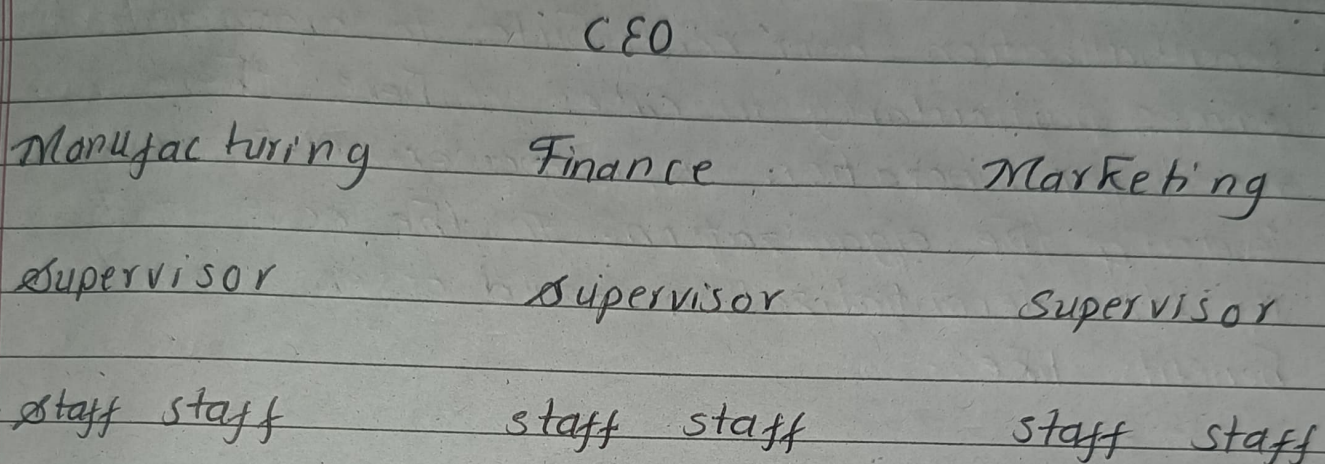 CEO
Manufacturing Finance Marketing
Supervisor Supervisor Supervisor
staff staff staff staff staff staff